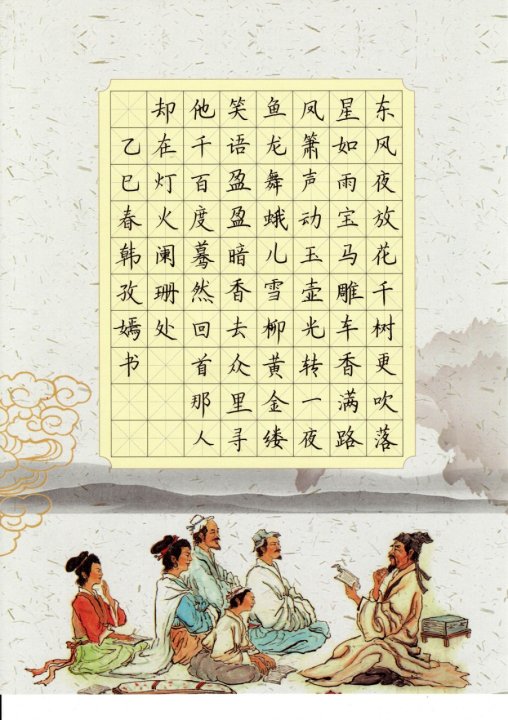 东风夜放花千树更吹落
星如雨宝马雕车香满路
凤箫声动玉壶光转一夜
鱼龙舞蛾儿雪柳黄金缕
笑语盈盈暗香去众里寻
他千百度蓦然回首那人
却在灯火阑珊处
乙巳春韩孜嫣书